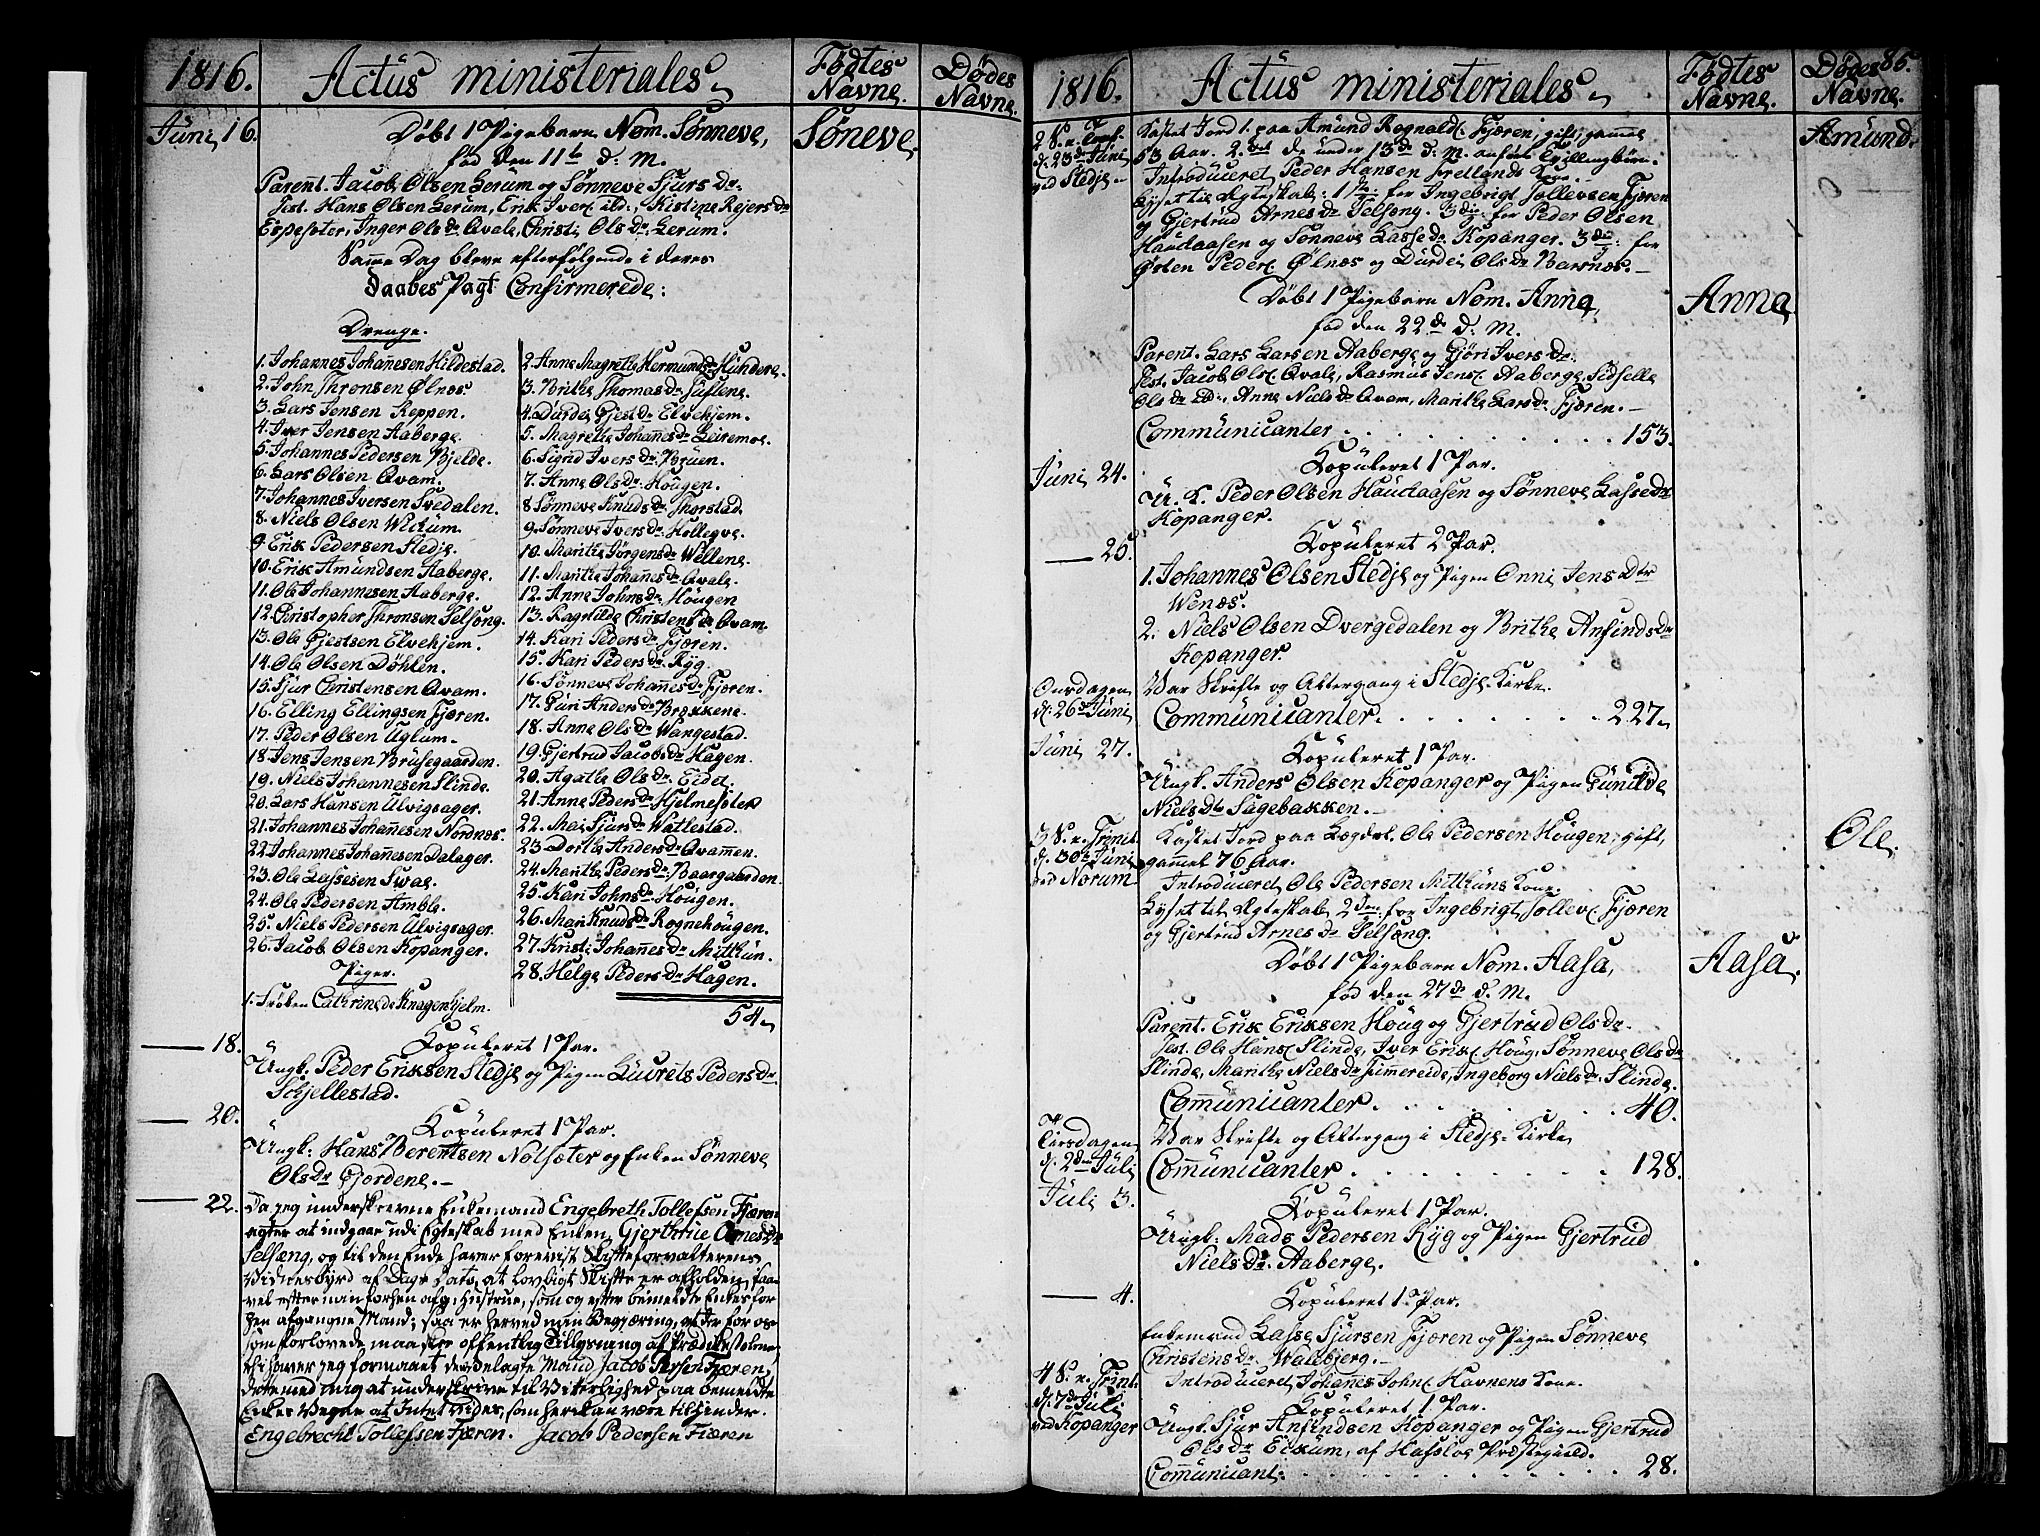 1816.
Actus ministeriales
Fødtes Navne.
Dødes Navne.
Juni 16.
Døbt 1 Pigebarn Nom. Sønneve,
Søneve.
fød den 11te d: M.
Parent. Jacob Olsen Lerum og Sønneve Sjurs Dr:
Test. Hans Olsen Lerum, Erik Ivers. ibd:, Kistine Rejers Dr
Espesæter, Inger Ols Dr Qvale, Christi Ols Dr: Lerum.
Samme Dag bleve efterfølgende i deres
Daabes Pagt Confirmerede:
Drenge.
1. Johannes Johanesen Hildestad.
2. John Thronsen Ølnes.
3. Lars Jensen Reppen.
4. Iver Jensen Aaberge.
5. Johannes Pedersen Bjelde.
6. Lars Olsen Qvam.
7. Johannes Iversen Svedalen.
8. Niels Olsen Wickum.
9. Erik Pedersen Stedje.
10. Erik Amundsen Aaberge.
11. Ole Johannesen Aaberge.
12. Christopher Thronsen Selseng.
13. Ole Gjestsen Elvekjem.
14. Ole Olsen Døhlen.
15. Sjur Christensen Qvam.
16. Elling Ellingsen Fjæren.
17. Peder Olsen Uglum.
18. Jens Jensen Brusegaarden.
19. Niels Johannesen Slinde.
20. Lars Hansen Ulvigsager.
21. Johannes Johanesen Nordnes.
22. Johannes Johanesen Dalager.
23. Ole Lassesen Swae.
24. Ole Pedersen Amble.
25. Niels Pedersen Ulvigsager.
26. Jacob Olsen Kopanger.
Piger.
1. Frøken Cathrine de Knagenhjelm.
2. Anne Magrethe Hermunds Dr Hundere.
3. Brithe Thomas Dr Juflene.
4. Durdei Gjest Dr Elvekjem.
5. Magrethe Johanes Dr Leiremoe.
6. Sigrid Ivers Dr: Bruen.
7. Anne Ols Dr: Hougen.
8. Sønneve Knuds Dr Thorstad.
9. Sønneve Ivers Dr: Hollegve.
10. Marithe Jørgens Dr Wellene.
11. Marithe Johanes Dr Qvale.
12. Anne Johns Dr Hougen
13. Ragnilde Christens Dr Qvam.
14. Kari Peders Dr Fjæren.
15. Kari Peders Dr. Ryg.
16. Sønneve Johanes Dr Fjæren.
17. Guri Anders Dr Brækkene.
18. Anne Ols Dr Wangestad.
19. Gjertrud Jacobs Dr Hagen.
20. Agathe Ols Dr. Eidet.
21. Anne Peders Dr Hjelmesæter
22. Mari Sjurs Dr Wattestad.
23. Dorthe Anders Dr Qvammen.
24. Marithe Peders Dr Baargaarden.
25. Kari Johns Dr Hougen.
26. Mari Knuds Dr Rognehougen.
27. Kristi Johanes Dr Mithun.
28. Helge Peders Dr Hagen.
54
18.
Kopuleret 1 Par.
Ungk. Peder Eriksen Stedje og Pigen Lurets Peders Dr
Schjellestad.
20.
Kopuleret 1 Par.
Ungk. Hans Berentsen Nolsæter og Enken Sønneve
Ols Dr Gjordene.
22.
Da jeg underskrevne Enkemand Engebreth Tollefsen Fjæren
agter at indgaae udi Egteskab med Enken Gjerthrue Arnes Dr
Selseng, og til den Ende haver forevist Skifteforvalterens
Vidnesbyrd af Dags Dato, at lovligt Skifte er afholden, saa
vel efter min forhen afg. Hustrue, som og efter bemeldte Enkes for
hen afgangne Mand; saa er herved min Begjæring, at der for os
som forlovede maa skee offentlig Tillysning af Prædikestolen
thi haver jeg formaaet den Mand Jacob Persen Fjæren,
dette med mig at underskrive til Vitterlighed paa bemeldte
Enkes Vegne at Intet vides, som heri kan være til hinder.
Engebrecht Tollefsen Fjæren. Jacob Pedersen Fiæren
1816.
Actus ministeriales
Fødtes Navne.
Dødes Navne.
86.
2 S. e. Trinit.
d. 23de Juni
ved Stedje
Kastet Jord 1. paa Amund Rognalds. Fjæren, gift, gamel
Amund.
53 Aar. 2. de under 13de d: M. anførte Tvillingbørn.
Introduceret Peder Hansen Fretlands Kone.
Lyset til Ægteskab: 1ste: for Ingebrigt Tollevsen Fjæren
og Gjertrud Arnes Dr Selseng. 3die for Peder Olsen
Haudaasen og Sønneve Lasse Dr Kopanger. 3die: for
Østen Peders. Ølnes og Durdei Ols Dr Barsnes.
Døbt 1 Pigebarn Nom. Anna,
Anna
fød den 22de d: M.
Parent. Lars Larsen Aaberge og Gjøri Ivers Dr:
Test. Jacob Ols. Qvale, Rasmus Jens. Aaberge, Sidselle
Ols Dr ibd:, Anne Niels Dr Qvam, Marithe Lars Dr Fjæren.
Communicanter . . . . 153.
Juni 24.
Kopuleret 1 Par.
U. K. Peder Olsen Haudaasen og Sønneve Lasse Dr
Kopanger.
25.
Kopuleret 2 Par.
1. Johannes Olsen Stedje og Pigen Onni Jens Dtr
Wenæs.
2. Niels Olsen Dvergedalen og Brithe Anfinds Dr
Kopanger.
Onsdagen
d. 26de Juni
Var Skrifte og Altergang i Stedje-Kirke.
Communicanter . . . . 227
Juni 27.
Kopuleret 1 Par.
Ungk. Anders Olsen Kopanger og Pigen Gunilde
Niels Dtr Sagebakken.
3 S. e. Trinit.
d. 30te Juni
ved Norum
Kastet Jord paa Lægdel. Ole Pedersen Hougen, gift,
Ole.
gammel 76 Aar.
Introduceret Ole Pedersen Mithuns Kone.
Lyset til Ægteskab 2den: for Ingebrigt Tollevs. Fjæren
og Gjertrud Arnes Dr Selseng.
Døbt 1 Pigebarn Nom. Aasa,
Aasa.
fød den 27de d. M.
Parent. Erik Eriksen Houg og Gjertrud Ols Dr.
Test. Ole Hans. Slinde, Iver Erik. Houg, Sønneve Ols Dr
Slinde, Marithe Niels Dr Fimreide, Ingeborg Niels Dr. Slinde.
Communicanter . . . . 40.
Tirsdagen
d. 2den Juli
Var Skrifte og Altergang i Stedje-Kirke
Communicanter . . . . 128.
Juli 3.
Kopuleret 1 Par.
Ungk. Mads Pedersen Ryg og Pigen Gjertrud
Niels Dr. Aaberge.
4.
Kopuleret 1 Par.
Enkemand Lasse Sjursen Fjæren og Pigen Sønneve
Christens Dr. Walebjerg.
4 S. e. Trinit.
d. 7de Juli
ved Kopanger
Introduceret Johanes John. Havnens Kone.
Kopuleret 1 Par.
Ungk. Sjur Anfindsen Kopanger og Pigen Gjertrud
Ols Dr Eikum, af Hafsloe Præstegield.
Communicant: . . . . 28.